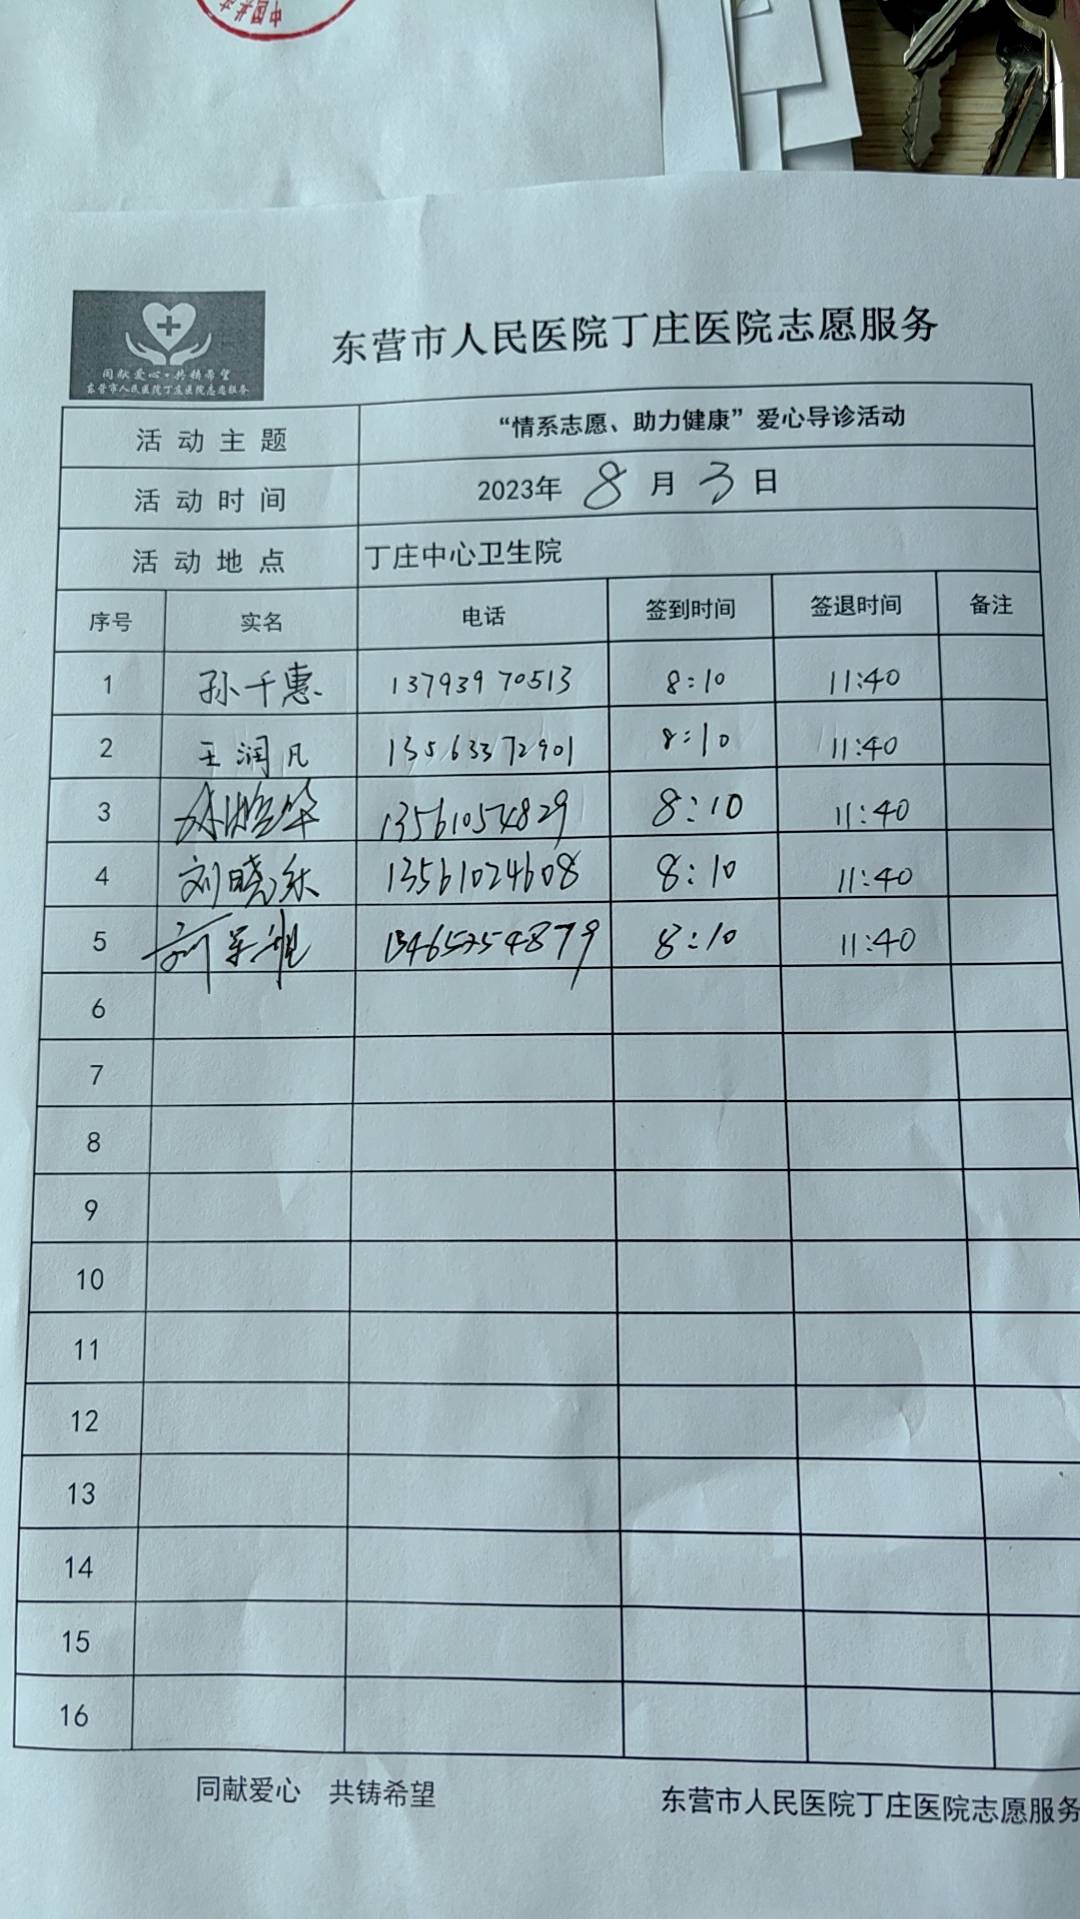 中国共产
同献爱心·共铸希望
东营市人民医院丁庄医院志愿服务
东营市人民医院丁庄医院志愿服务
活动主题 “情系志愿、助力健康”爱心导诊活动
活动时间 2023年 8 月 3 日
活动地点 丁庄中心卫生院
序号 实名 电话 签到时间 签退时间 备注
1 孙千惠 13793970513 8:10 11:40
2 王润凡 13563372901 8:10 11:40
3 13561054829 8:10 11:40
4 刘晓乐 13561024608 8:10 11:40
5 8:10 11:40
6
7
8
9
10
11
12
13
14
15
16
同献爱心 共铸希望 东营市人民医院丁庄医院志愿服务